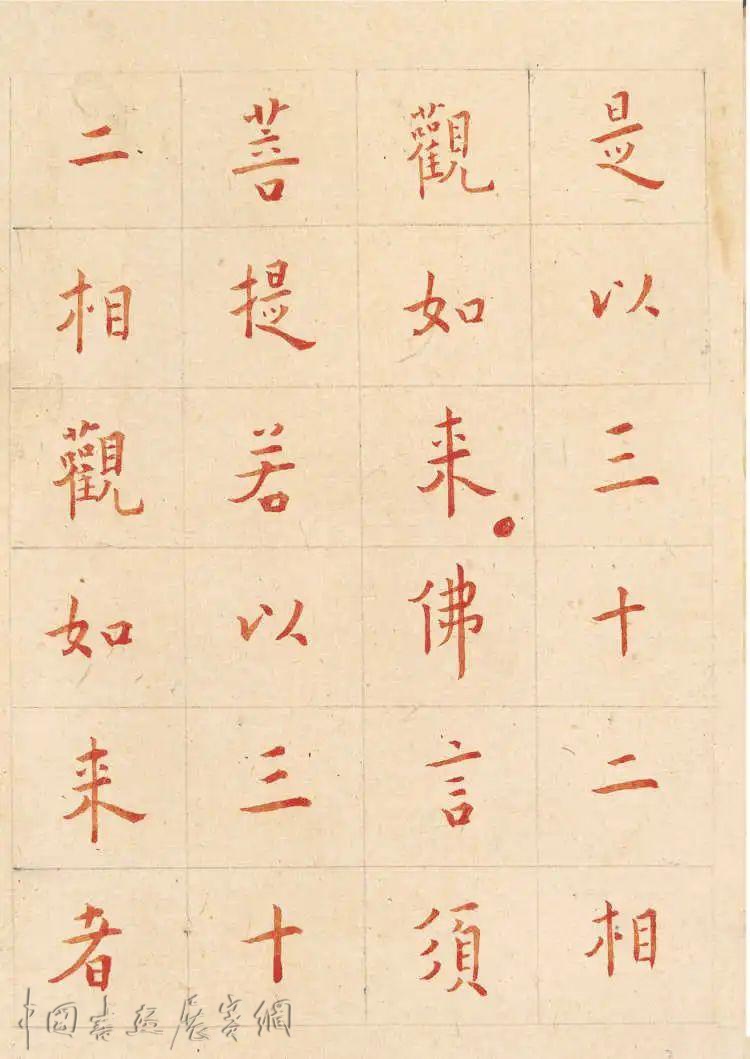 是以三十二相
觀如来。佛言須
菩提若以三十
二相觀如来者
中國書法展賽網